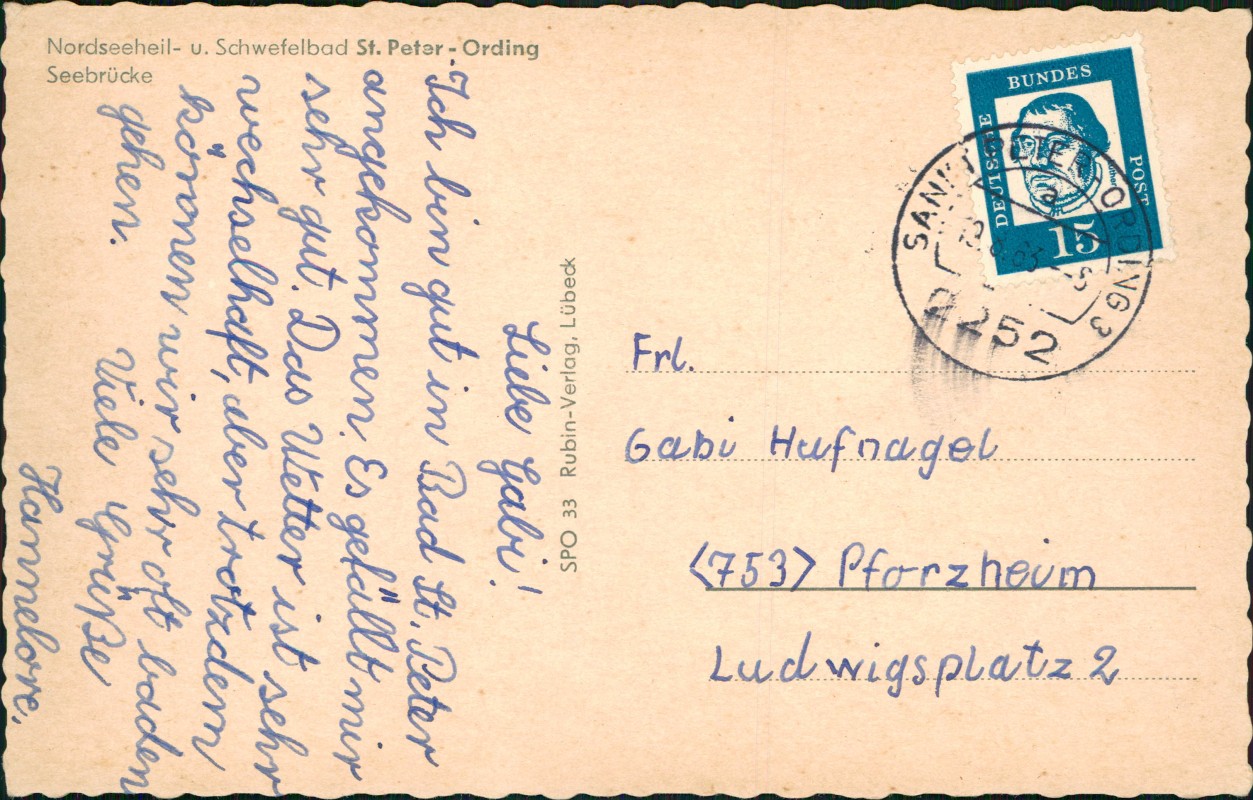 Nordseeheil- u. Schwefelbad St. Peter-Ording
Seebrücke
Liebe Gabi!
Ich bin gut in Bad St. Peter
angekommen. Es gefällt mir
sehr gut. Das Wetter ist sehr
wechselhaft, aber trotzdem
können wir sehr oft baden
gehen.
Viele Grüße
Hannelore.
SPO 33 Rubin-Verlag, Lübeck
DEUTSCHE
BUNDES
POST
15
SANKT PETER-ORDING 3
a
2252
Frl.
Gabi Hufnagel
<753> Pforzheim
Ludwigsplatz 2